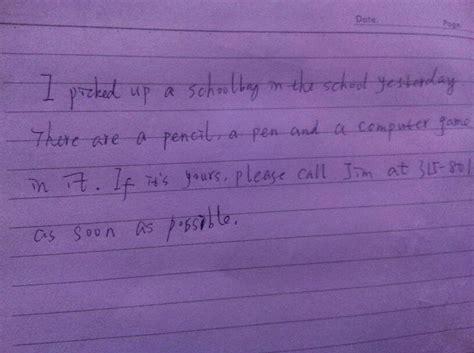 Date. Page
I picked up a schoolbag in the school yesterday
There are a pencil, a pen and a computer game
in it. If it's yours, please call Jim at 315-801
as soon as possible.